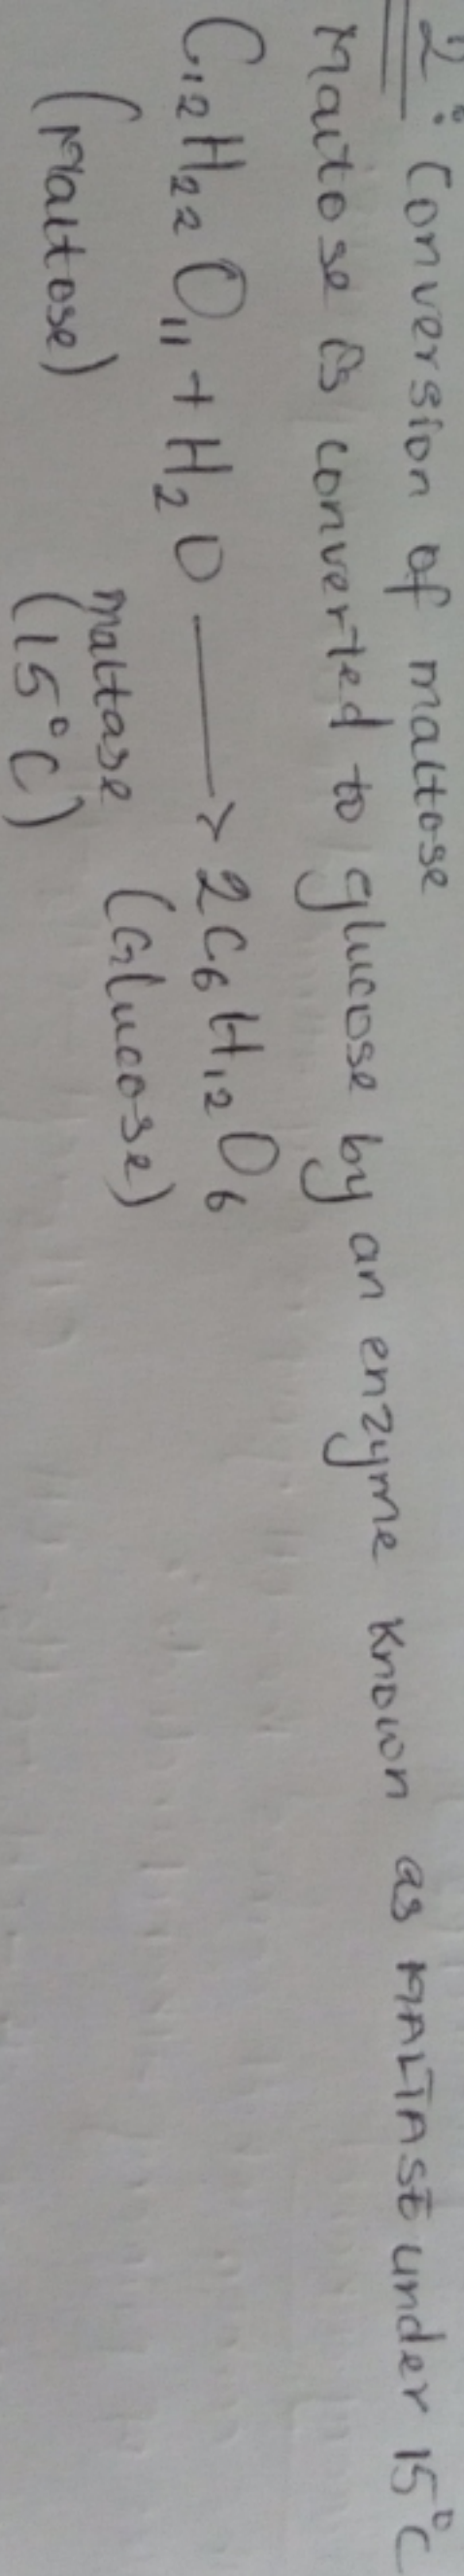 2: Conversion of maltose
Maltose is converted to glucose by an enzyme known as MALTASE under 15°C
C₁₂H₂₂O₁₁ + H₂O ⟶ 2C₆H₁₂O₆
(Maltose) maltase (Glucose)
(15°C)